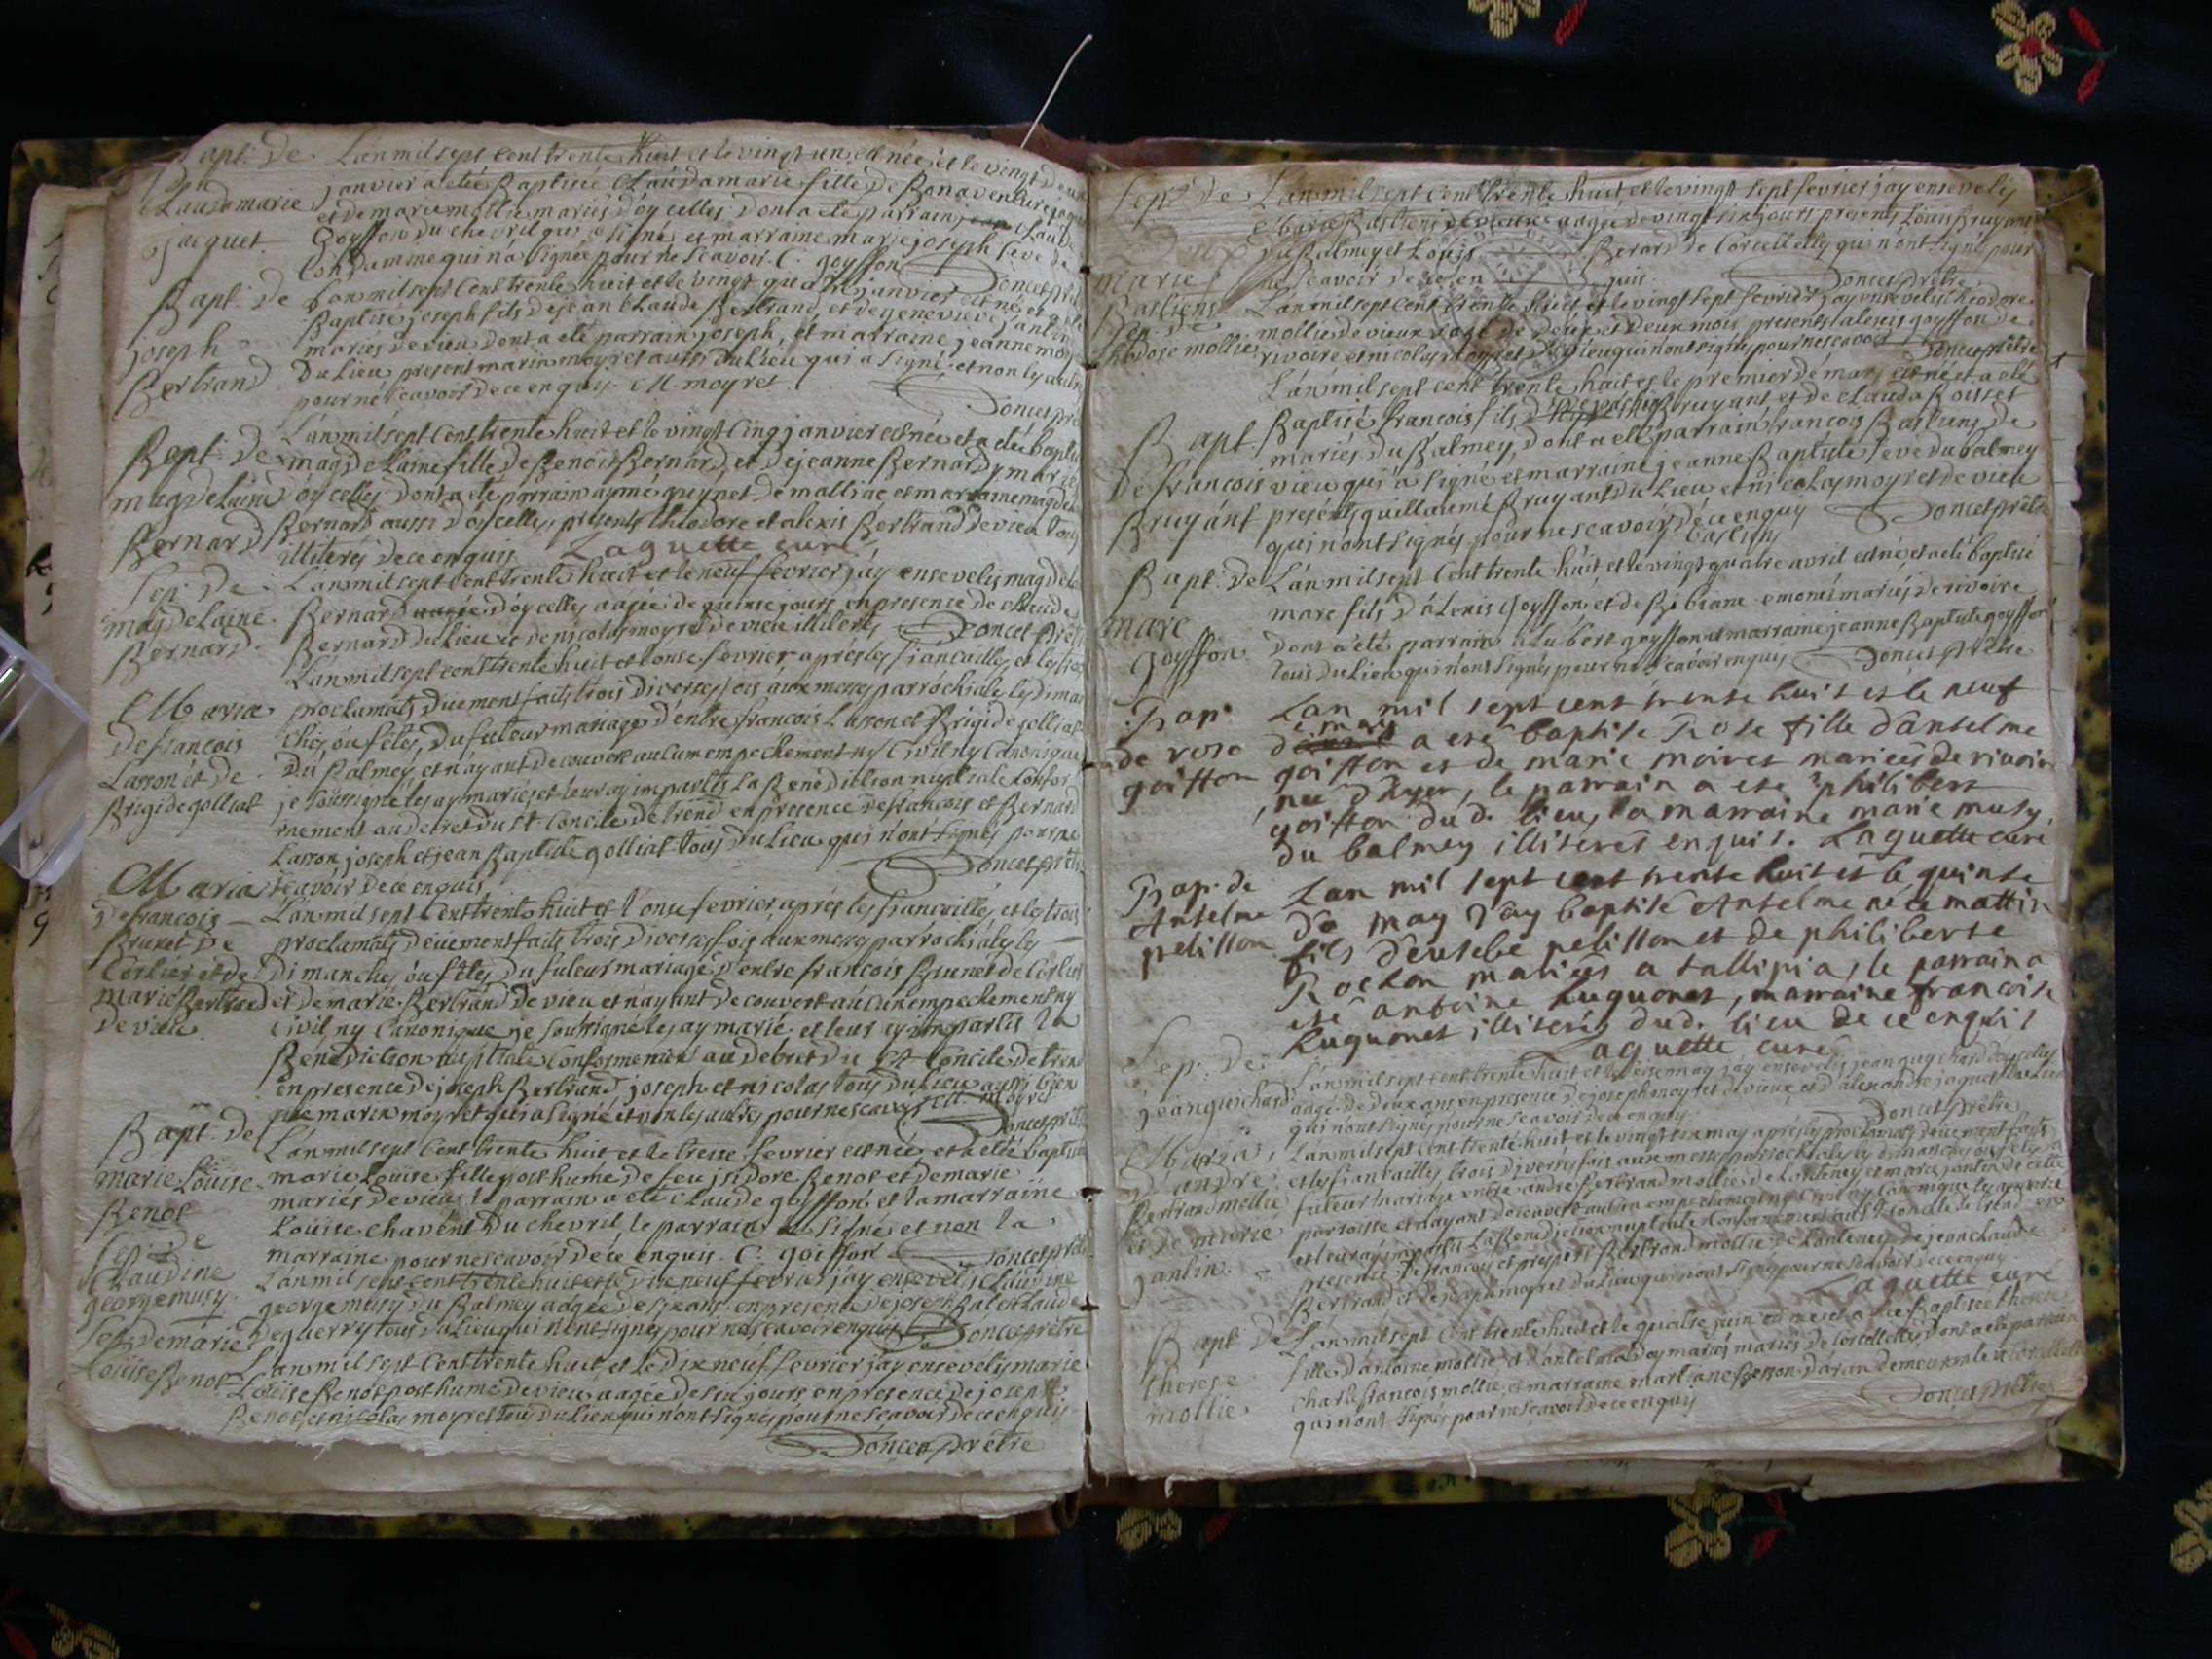 Bapt. de
Claudamarie
jacquet
L'an mil sept cent trente huit et le vingt un est née et le vingt deux
janvier a été Baptisée Claudamarie fille de Bonaventure jaquet
et de marie mollie mariés d'oycelles dont a été parrain Claude
Goyffon du chevril qui a signé et marraine marie joseph seve de
Condamine qui n'a signé pour ne scavoir. C. goyffon Doncet prê
Bapt. de
joseph
Bertrand
L'an mil sept cent trente huit et le vingt quatre janvier est né et a été
Baptisé joseph fils de jean Claude Bertrand et de genevieve jantin
mariés de vieu dont a été parrain joseph, et marraine jeanne moy
du Lieu present marin moyret aussi du Lieu qui a signé et non les autres
pour ne scavoir de ce enquis. M. moyret
Doncet prê
Bapt. de
magdelaine
Bernard
L'an mil sept cent trente huit et le vingt cinq janvier est née et a été bapti
magdelaine fille de Benoit Bernard, et de jeanne Bernard mariés
d'oycelles dont a été parrain aymé guynet de malliac et marraine magdel
Bernard aussi d'oycelles, presents theodore et alexis Bertrand de vieu tous
illiterés de ce enquis Laguette curé
Sep. de
magdelaine
Bernard
L'an mil sept cent trente huit et le neuf fevrier j'ay ensevelis magdel
Bernard d'oycelles aagée de quinse jours en presence de Claude
Bernard du Lieu et de nicolas moyret de vieu illiterés Doncet prêt
Maria
de francois
Lasson et de
Brigide golliat
L'an mil sept cent trente huit et l'onse fevrier apres les fiancailles, et les trois
proclamats duement faits trois diverses fois aux messes parrochiales les diman
ches ou fêtes, du futeur mariage d'entre francois Lasson et Brigide golliat
du Balmey, et n'ayant decouvert aucun empechement ny civil ny canonique
je soussigné les ay mariés et leur ay impartis la Benediction nuptiale confor
mement au decret du St Concile de trend en presence de francois et Bernard
Lasson joseph et jean Baptiste golliat tous du Lieu qui n'ont signés pour ne
scavoir de ce enquis Doncet prêt
Maria
de francois
Brunet de
Corlier et de
marie Bertrand
de vieu
L'an mil sept cent trente huit et l'onse fevrier, aprés les fiancailles, et les trois
proclamats deuement faits trois diverses fois aux messes parrochiales les
dimanches ou fêtes du futeur mariage d'entre francois Brunet de Corlier
et de marie Bertrand de vieu et n'ayant decouvert aucun empechement ny
civil ny canonique je soussigné les ay marié et leur ay impartis la
Benediction nuptiale conformement au decret du St Concile de trend
en presence de joseph Bertrand joseph et nicolas tous du Lieu aussi bien
que marin moyret qui a signé et non les autres pour ne scavoir M. moyret
Doncet prêt
Bapt. de
marie Louise
Benot
L'an mil sept cent trente huit et le treise fevrier est née, et a été baptisée
marie Louise fille posthume de feu isidore Benot et de marie
mariés de vieu le parrain a été Claude goyffon et la marraine
Louise chavent du chevril, le parrain a signé et non la
marraine pour ne scavoir de ce enquis. C. goiffon Doncet prêt
Sep. de
Claudine
george musy
L'an mil sept cent trente huit et le dix neuf fevrier j'ay ensevelis Claudine
george musy du Balmey aagée de six ans en presence de joseph et Claude
deguerry tous du Lieu qui n'ont signés pour ne scavoir enquis Doncet prêtre
Sep. de marie
Louise Benot
L'an mil sept cent trente huit, et le dix neuf fevrier j'ay ensevelis marie
Louise Benot posthume de vieu aagée de six jours en presence de joseph
Benot, et nicolas moyret tous du Lieu qui n'ont signés pour ne scavoir de ce enquis
Doncet prêtre
Sep. de
marie
Bastiens
L'an mil sept cent trente huit et le vingt sept fevrier j'ay ensevelis
marie Bastiens de vieu aagée de vingt six jours presents Louis Bruyant
du Balmey et Louis Berard de Corcelles qui n'ont signés pour
ne scavoir de ce enquis Doncet prêtre
Sep. de
theodore mollie
L'an mil sept cent trente huit et le vingt sept fevrier j'ay ensevelis theodore
mollie de vieu aagé de deux mois presents alexis goyffon de
rivoire et nicolas moyret de vieu qui n'ont signés pour ne scavoir Doncet prêtre
Bapt
de francois
Bruyant
L'an mil sept cent trente huit et le premier de mars est né et a été
Baptisé francois fils de Bruyant et de Clauda Rousset
mariés du Balmey, dont a été parrain francois Bastiens de
vieu qui a signé et marraine jeanne Baptiste seve du balmey
presents guillaume Bruyant du Lieu et nicolas moyret de vieu
qui n'ont signés pour ne scavoir de ce enquis Doncet prêtre
bastiens
Bapt. de
marc
goyffon
L'an mil sept cent trente huit et le vingt quatre avril est né et a été baptisé
marc fils d'alexis goyffon et de Bibiane emoni mariés de rivoire
dont a été parrain alubert goyffon et marraine jeanne Baptiste goyffon
tous du Lieu qui n'ont signés pour ne scavoir enquis Doncet prêtre
Bap.
de rose
goiffon
Lan mil sept cens trente huit et le neuf
de may a esté baptisé Rose fille d'antelme
goiffon et de marie moiret mariés de rivoire
née d'hyer, le parrain a esté philibert
goiffon dud. lieu, la marraine marie musy
du balmey illiterés enquis. Laguette curé
Bap. de
Antelme
pelisson
Lan mil sept cent trente huit et le quinse
de may j'ay baptisé Antelme né ce mattin
fils d'eusebe pelisson et de philiberte
Rochon mariés a tallipia, le parrain a
esté antoine huguonet, marraine francoise
huguonet illiterés dud. lieu de ce enquis
Laguette curé
Sep. de
jean guichard
L'an mil sept cent trente huit et le seise may j'ay ensevelis jean guychard d'oycelles
aagé de deux ans en presence de joseph moyret de vieu, et d'alexandre jaquet du Lieu
qui n'ont signés pour ne scavoir de ce enquis Doncet prêtre
Maria
d'andré
Bertrand mollie
et de marie
jantin
L'an mil sept cent trente huit et le vingt six may aprés les proclamats deuement faits
et les fiancailles trois diverses fois aux messes parrochiales les dimanches ou fêtes du
futeur mariage entre andré Bertrand mollie de Lanteney et marie jantin de cette
parroisse et n'ayant decouvert aucun empechement ny civil ny canonique les ay mariés
et leur ay impartis la Benediction nuptiale conformement au St Concile de trend en
presence de francois et prosper Bertrand mollie de Lanteney de jean claude
Bertrand et de joseph moyret du Lieu qui n'ont signés pour ne scavoir de ce enquis
Laguette curé
Bapt. de
therese
mollie
L'an mil sept cent trente huit et le quatre juin est née et a été Baptisée therese
fille d'antoine mollie et d'antelma mariés de Corcelles, dont a été parrain
charle francois mollie, et marraine marianne Besson d'aran demeurante a Corcelles
qui n'ont signés pour ne scavoir de ce enquis Doncet prêtre